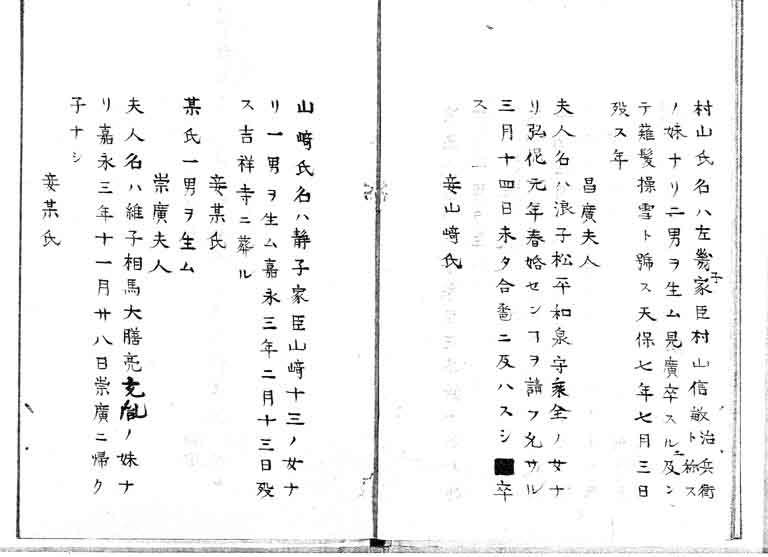 村山氏名ハ左幾子家臣村山信敏治兵衛ト称ス
ノ妹ナリ二男ヲ生ム見廣卒スルニ及ン
テ薙髮操雪ト號ス天保七年七月三日
歿ス年
昌廣夫人
夫人名ハ浪子松平和泉守乘全ノ女ナ
リ弘化元年春婚センヿヲ請フ允サル
三月十四日未タ合巹ニ及ハスシ卒
ス
妾山﨑氏
山﨑氏名ハ静子家臣山﨑十三ノ女ナ
リ一男ヲ生ム嘉永三年二月十三日歿
ス吉祥寺ニ葬ル
妾某氏
某氏一男ヲ生ム
崇廣夫人
夫人名ハ維子相馬大膳亮充胤ノ妹ナ
リ嘉永三年十一月廿八日崇廣ニ帰ク
子ナシ
妾某氏